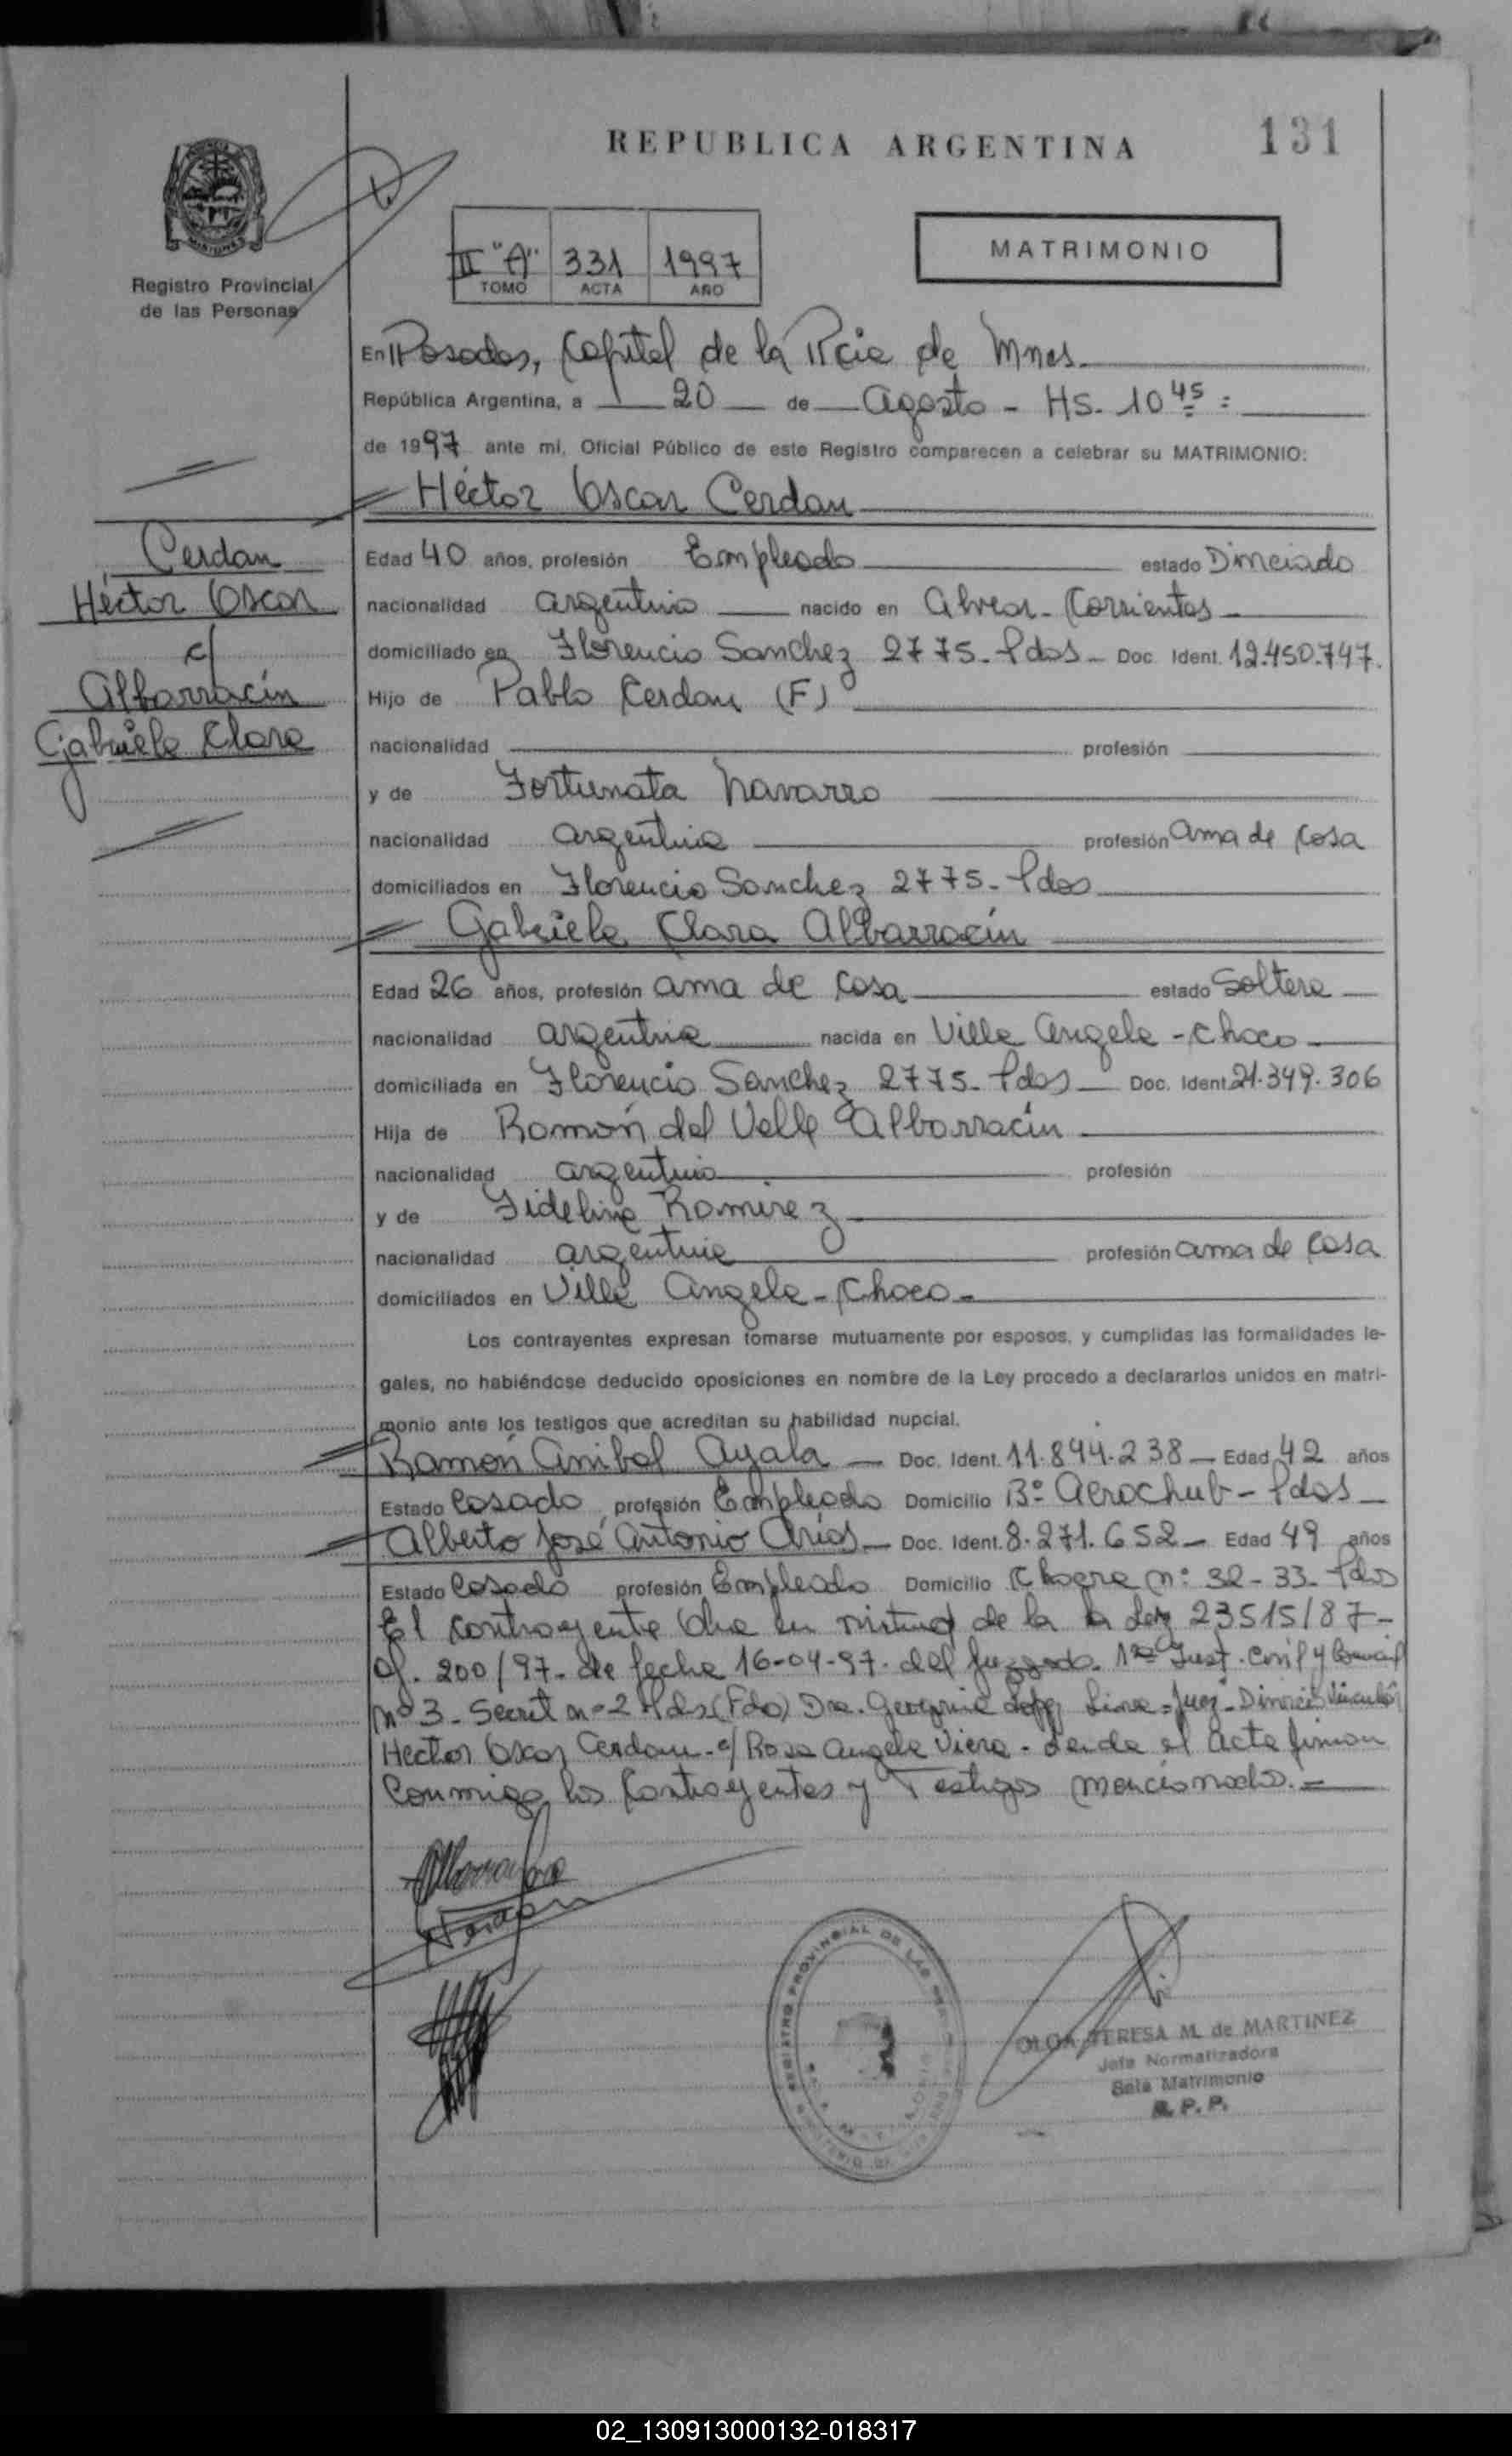 REPUBLICA ARGENTINA
131
Registro Provincial
de las Personas
II "A" 331 1997
TOMO ACTA AÑO
MATRIMONIO
En Posadas, Capital de la Pcia de Mnes.
República Argentina, a 20 de Agosto - Hs. 10 45 =
de 1997 ante mi, Oficial Público de este Registro comparecen a celebrar su MATRIMONIO:
Héctor Oscar Cerdan
Cerdan
Héctor Oscar
c/
Albarracín
Gabriela Clara
Edad 40 años, profesión Empleado estado Divorciado
nacionalidad argentino nacido en Alvear - Corrientes
domiciliado en Florencio Sanchez 2775 - Pdas - Doc. Ident. 12.450.747.
Hijo de Pablo Cerdan (F)
nacionalidad profesión
y de Fortunata Navarro
nacionalidad argentina profesión ama de casa
domiciliados en Florencio Sanchez 2775 - Pdas
Gabriela Clara Albarracín
Edad 26 años, profesión ama de casa estado Soltera
nacionalidad argentina nacida en Villa Angela - Chaco
domiciliada en Florencio Sanchez 2775 - Pdas Doc. Ident. 21.349.306
Hija de Ramón del Valle Albarracín
nacionalidad argentino profesión
y de Fidelina Ramirez
nacionalidad argentina profesión ama de casa
domiciliados en Villa Angela - Chaco -
Los contrayentes expresan tomarse mutuamente por esposos, y cumplidas las formalidades le-
gales, no habiéndose deducido oposiciones en nombre de la Ley procedo a declararlos unidos en matri-
monio ante los testigos que acreditan su habilidad nupcial.
Ramón Anibal Ayala - Doc. Ident. 11.894.238 - Edad 42 años
Estado Casado profesión Empleado Domicilio Bº Aeroclub - Pdas
Alberto José Antonio Arias - Doc. Ident. 8.271.652 - Edad 49 años
Estado Casado profesión Empleado Domicilio Chacra nº 32-33 - Pdas
El contrayente en virtud de la Ley 23515/87 -
Of. 200/97 - de fecha 16-04-97 - del Juzgado 1ra Inst. Civil y
Nº 3 - Secret nº 2 Pdas (Fdo) Dra. - Juez -
Hector Oscar Cerdan - c/ Rosa Angela Viera - Leida el Acta firman
Conmigo los Contrayentes y Testigos mencionados. =
REGISTRO PROVINCIAL DE LAS
OLGA TERESA M. de MARTINEZ
Jefa Normalizadora
Sala Matrimonio
R. P. P.
02_130913000132-018317